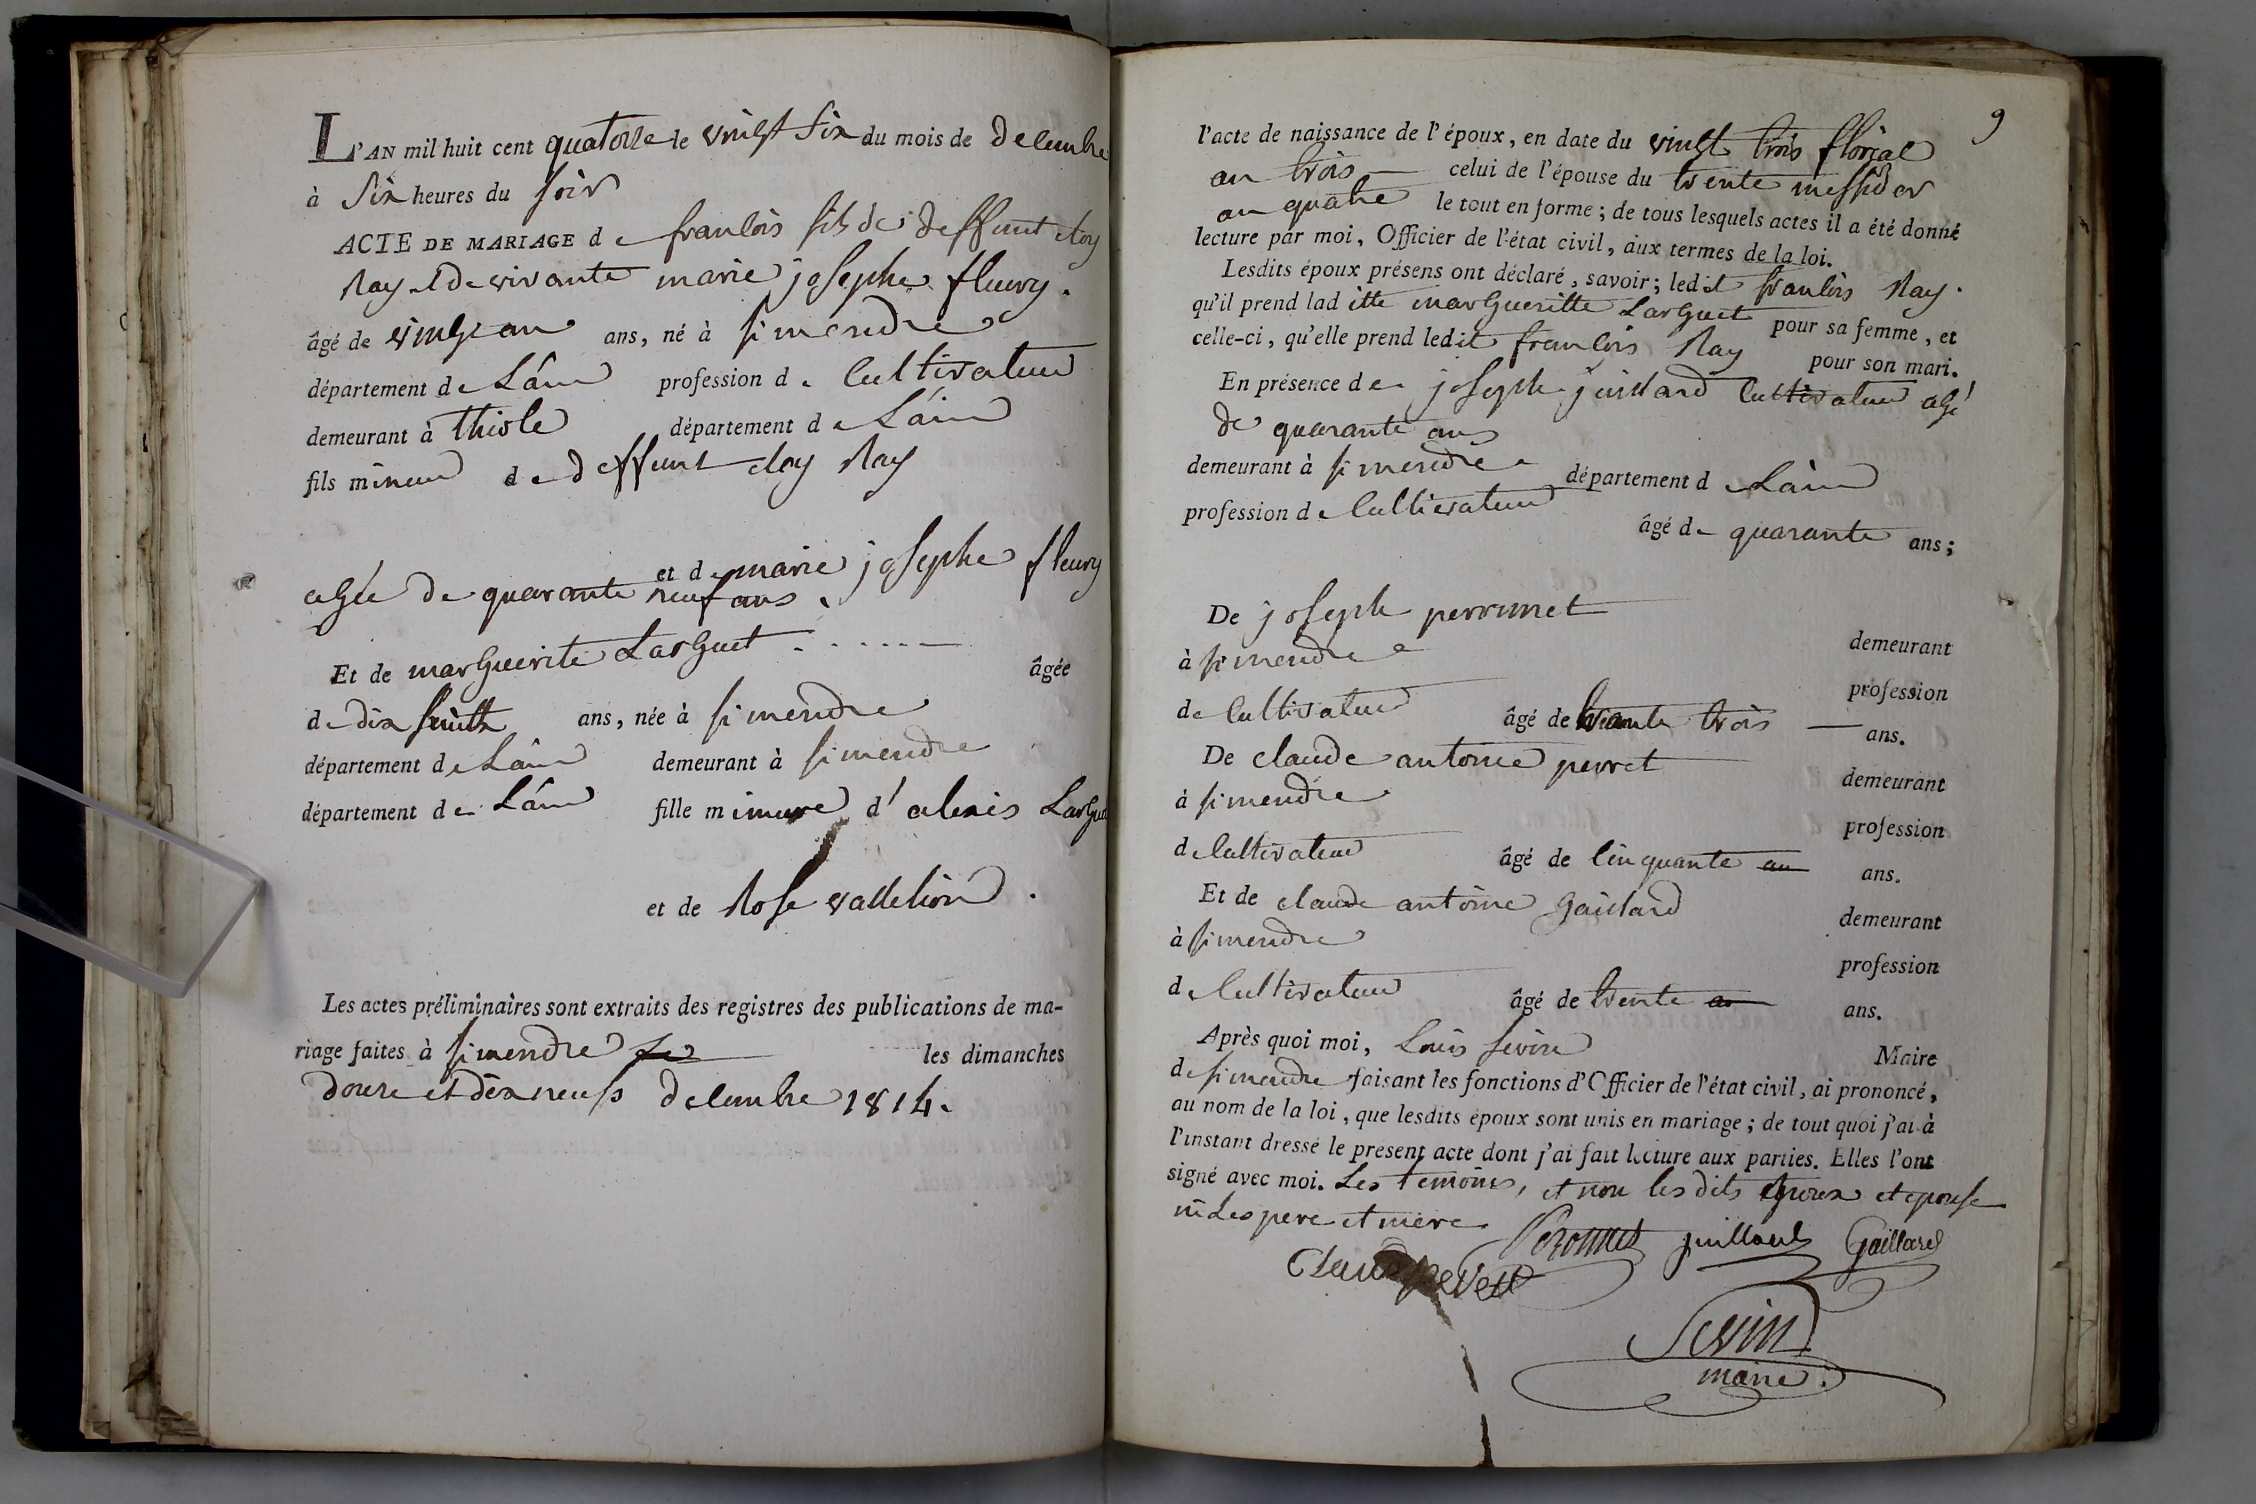 L'AN mil huit cent quatorze le vingt six du mois de decembre
à six heures du soir
ACTE DE MARIAGE de francois fils de deffunt eloy
Ray et de vivante marie josephe fleury.
âgé de vingt an ans, né à simendre
département de Lâin profession de cultivateur
demeurant à thiole département de Lâin
fils mineur de deffunt eloy Ray
et de marie josephe fleury
agée de quarante neuf ans.
Et de marguerite Larguet âgée
de dix huitt ans, née à simendre
département de Lâin demeurant à simendre
département de Lâin fille mineure d'alexis Larguet
et de Rose vallelion.
Les actes préliminaires sont extraits des registres des publications de ma-
riage faites à simendre les dimanches
douze et dix neufs decembre 1814.
9
l'acte de naissance de l'époux, en date du vingt trois floreal
an trois celui de l'épouse du trente messidor
an quatre le tout en forme ; de tous lesquels actes il a été donné
lecture par moi, Officier de l'état civil, aux termes de la loi.
Lesdits époux présens ont déclaré, savoir ; ledit francois Ray.
qu'il prend laditte margueritte Larguet pour sa femme, et
celle-ci, qu'elle prend ledit francois Ray pour son mari.
En présence de joseph juillard cultivateur agé
de quarante ans
demeurant à simendre département de Lâin
profession de cultivateur âgé de quarante ans ;
De joseph perounet demeurant
à simendre profession
de cultivateur âgé de trante trois ans.
De claude antoine perret demeurant
à simendre profession
d cultivateur âgé de cinquante an ans.
Et de claude antoine Gaillard demeurant
à simendre profession
de cultivateur âgé de trente an ans.
Après quoi moi, Louis sevin Maire
de simendre faisant les fonctions d'Officier de l'état civil, ai prononcé,
au nom de la loi, que lesdits époux sont unis en mariage ; de tout quoi j'ai à
l'instant dressé le présent acte dont j'ai fait lecture aux parties. Elles l'ont
signé avec moi. Les temoins, et non les dits epoux et epouse
ni Les pere et mere
Peronnet juillard Gaillard
Claude perret
Sevin
maire.